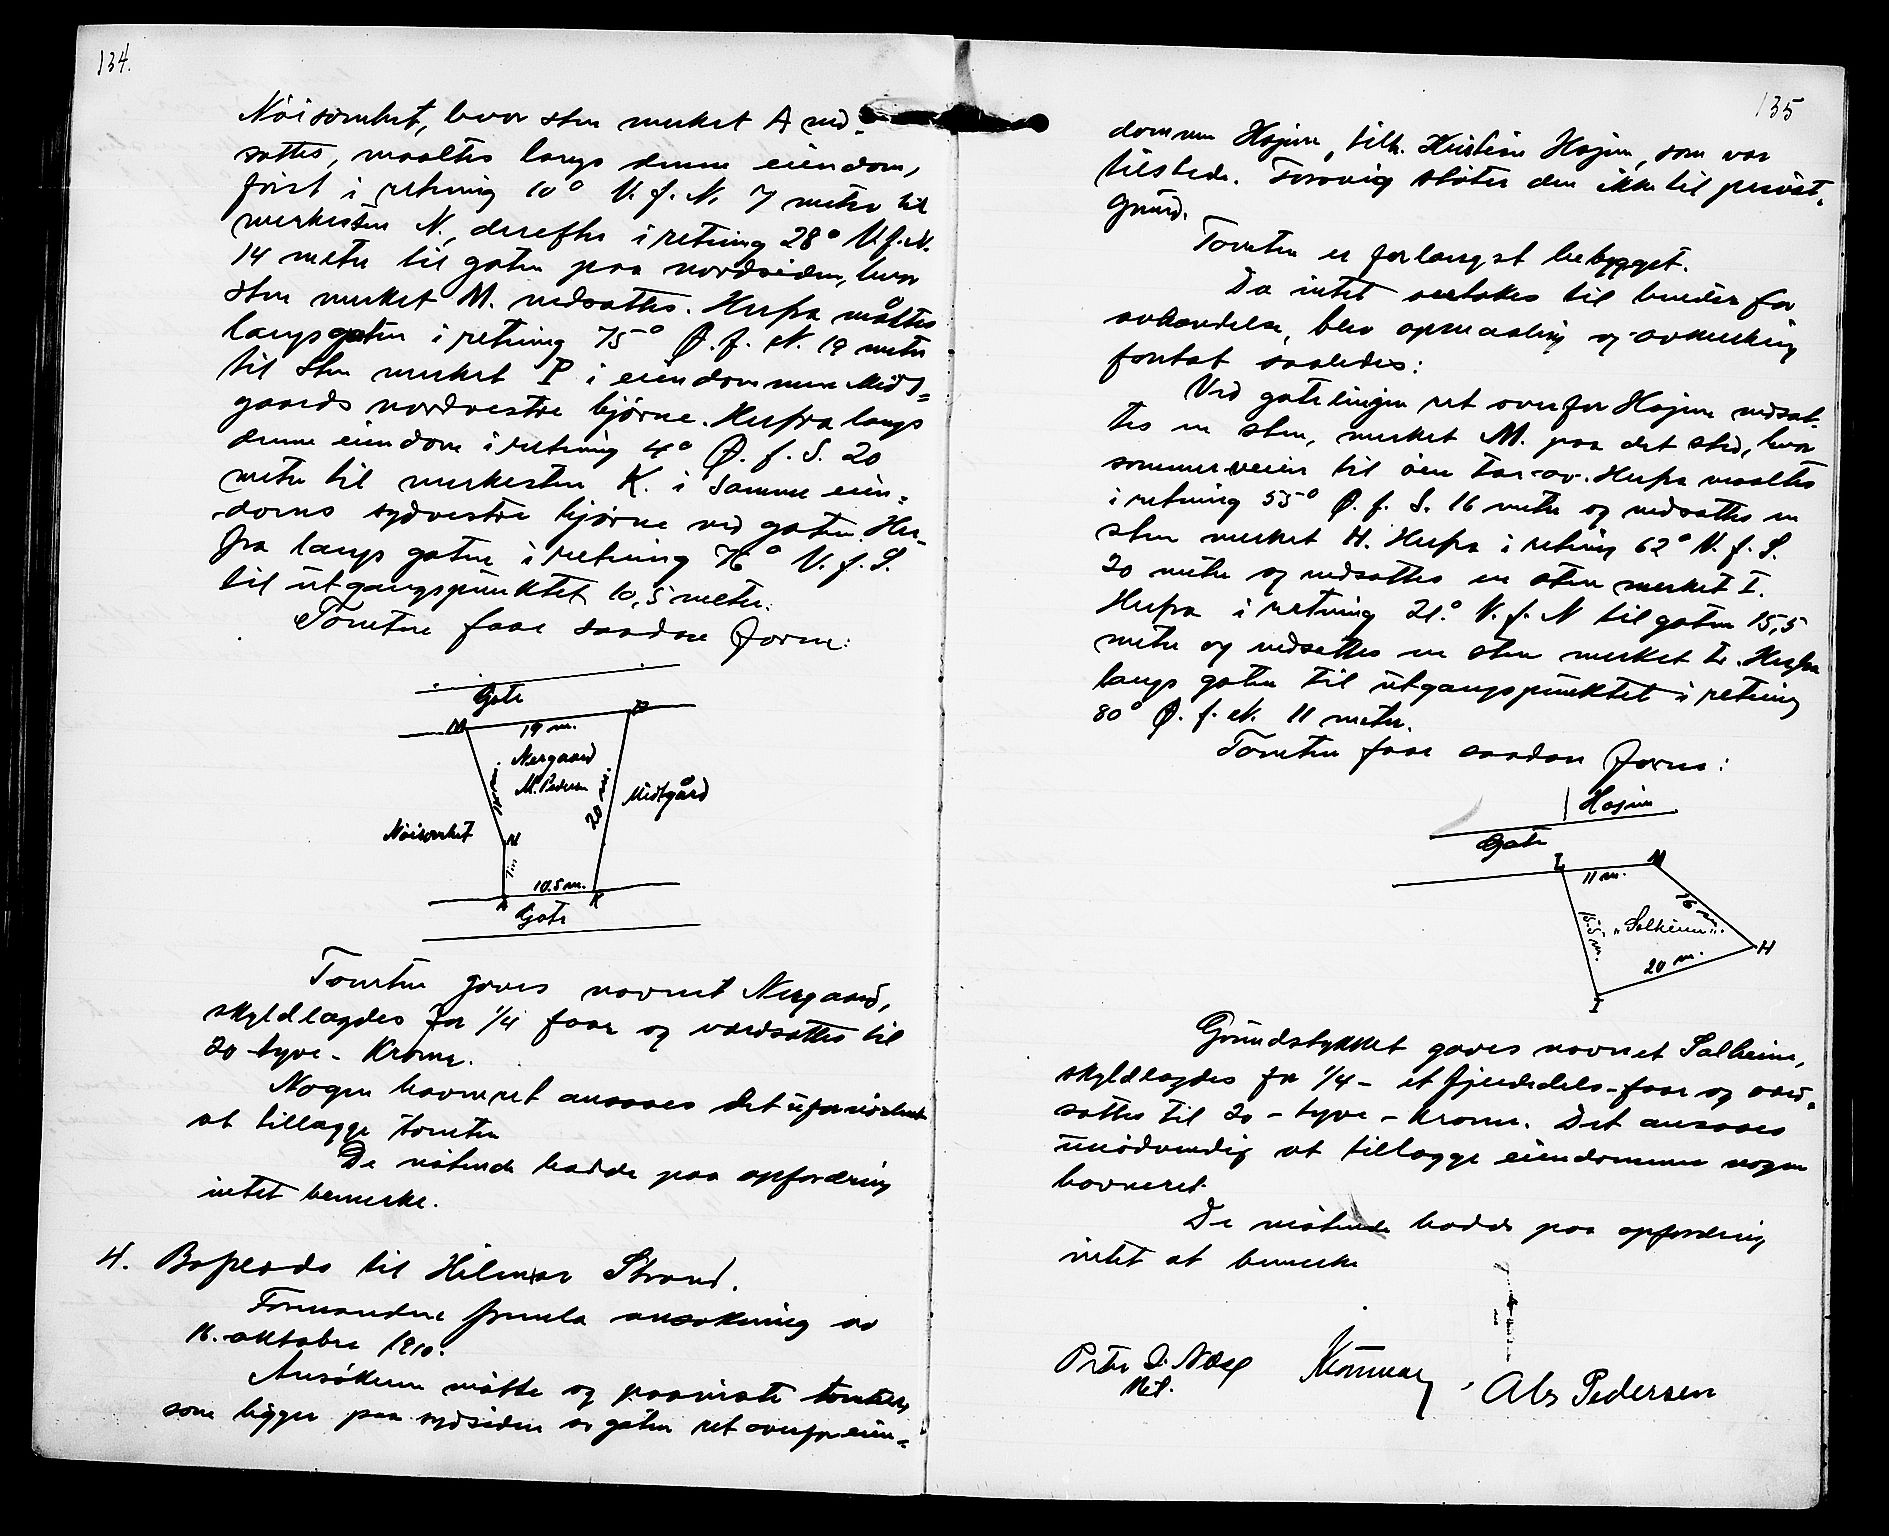 134.
Nöisomhet, hvor sten merket A ned-
sattes, maaltes langs denne eiendom,
först i retning 10° V. f. N. 7 meter til
merkesten N., derefter i retning 28° V. f. N.
14 meter til gaten paa nordsiden, hvor
sten merket M. nedsattes. Herfra måltes
langs gaten i retning 75° Ø. f. N. 19 meter
til sten merket P i eiendommen Midt=
gaards nordvestre hjørne. Herfra langs
denne eiendom i retning 4° Ø. f. S. 20
meter til merkesten K. i samme eien=
doms sydvestre hjørne ved gaten. Her-
fra langs gaten i retning 76° V. f. S.
til utgangspunktet 10,5 meter.
Tomten faar saadan form:
Gate
M P
19 m.
Nergaard
M. Pedersen
14 m.
20 m.
Midtgård
Nöisomhet
N
7 m
10.5 m.
A K
Gate
Tomten gaves navnet Nergaard,
skyldlægdes for 1/4 faar og værdsattes til
20 -tyve- Kroner.
Nogen havneret ansaaes det ufornödent
at tillægge tomten
De mötende hadde paa opfordring
intet bemerke.
4. Boplads til Hilmar Strand.
Formandene fremla ansökning av
16. oktober 1910.
Ansökeren mötte og paaviste tomten,
som ligger paa sydsiden av gaten ret overfor eien=
135
dommen Højen, tilh. Kristine Højen, som var
tilstede. Forövrig stöter den ikke til privat
grund.
Tomten er forlængst bebygget.
Da intet antokes til hinder for
avhændelse, blev opmaaling og avmerking
foretat saaledes:
Ved gatelinjen ret overfor Højen nedsat-
tes en sten, merket M. paa det sted, hvor
sommerveien til öen tar av. Herfra maaltes
i retning 55° Ø. f. S. 16 meter og nedsattes en
sten merket H. Herfra i retning 62° V. f. S.
20 meter og nedsattes en sten merket I.
Herfra i retning 21° V. f. N til gaten 15,5
meter og nedsattes en sten merket L. Herfra
langs gaten til utgangspunktet i retning
80° Ø. f. N. 11 meter.
Tomten faar saadan form:
Højen
Gate
L M
11 m.
16 m.
15.5 m.
„Solheim".
H
20 m.
I
Grundstykket gaves navnet Solheim,
skyldlægdes for 1/4 - et fjerdedels-faar og værd=
sattes til 20 - tyve - kroner. Det ansaaes
unödvendig at tillægge eiendommen nogen
havneret.
De mötende hadde paa opfordring
intet at bemerke
Alb Pedersen